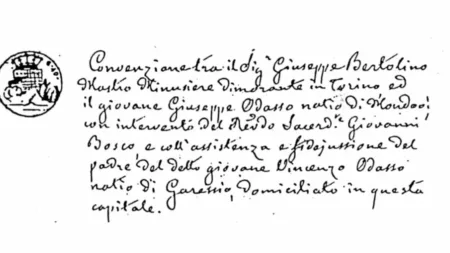 Convenzione tra il Sig.r Giuseppe Bertolino
Mastro Minusiere dimorante in Torino ed
il giovane Giuseppe Odasso natio di Mondovì
con intervento del Rev.do Sacerd.te Giovanni
Bosco e coll'assistenza e fidejussione del
padre del detto giovane Vincenzo Odasso
natio di Garessio, domiciliato in questa
capitale.